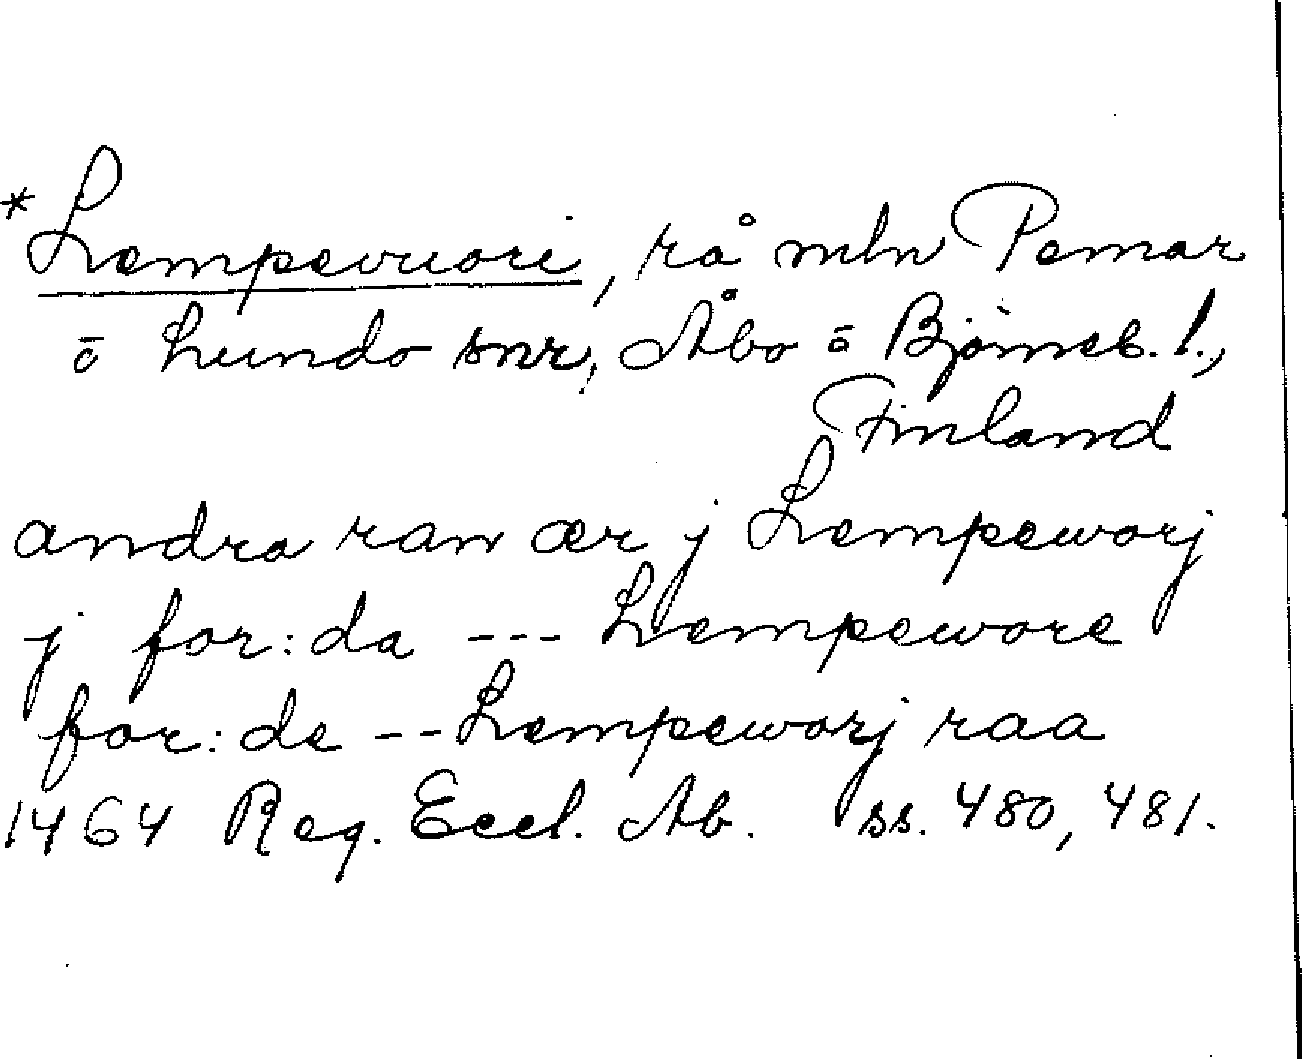 *Lempevuori, rå mln Pemar
ō Lundo snr, Åbo ō Björneb. l.,
Finland
andra ran ær j Lempeworj
j for:da --- Lempewore
for:de -- Lempeworj raa
1464 Reg. Eccl. Ab. ss. 480, 481.